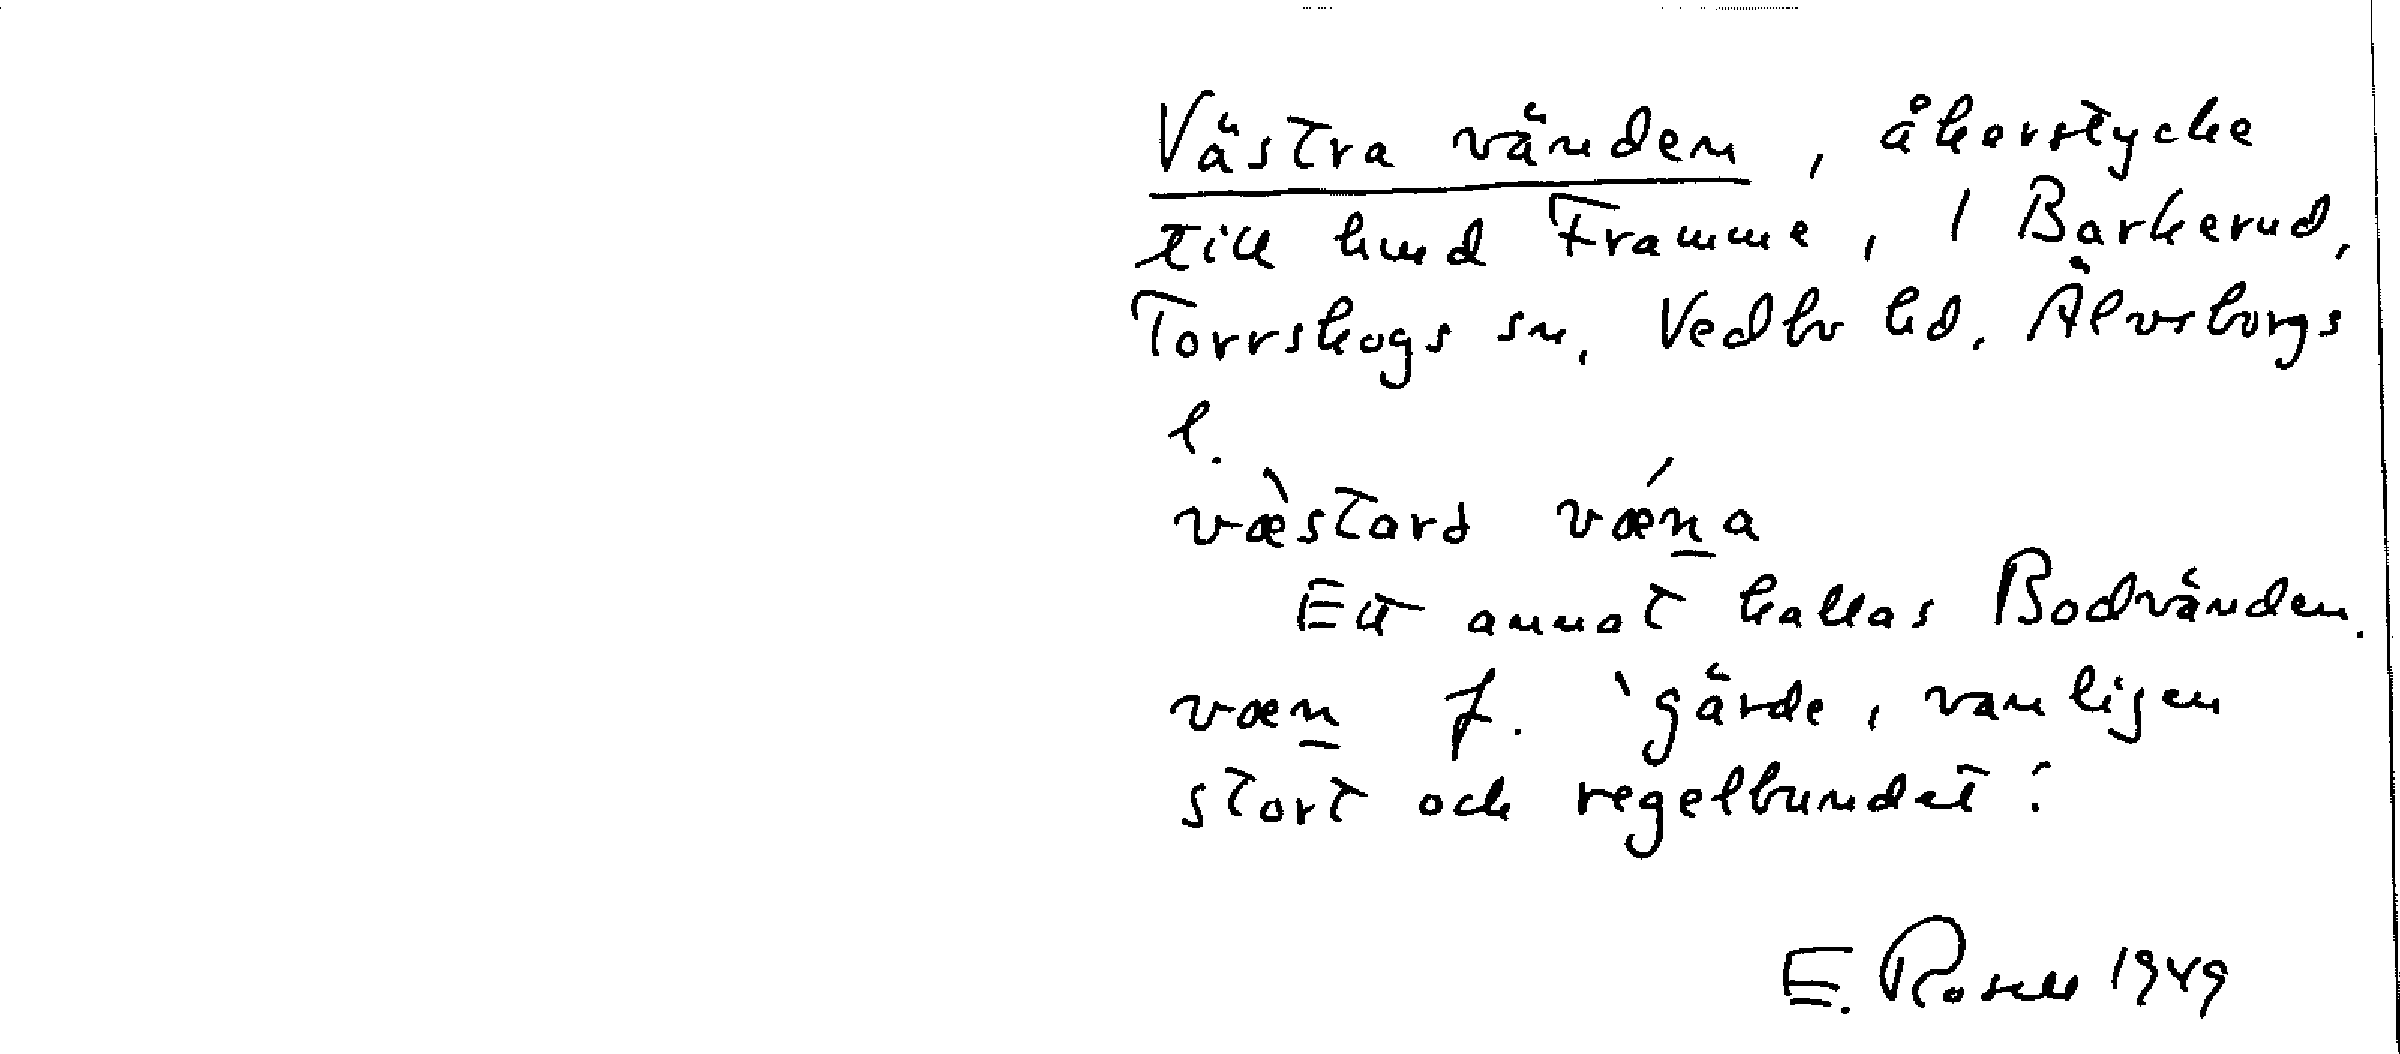 Västra vänden, åkerstycke
till hmd Framme, 1 Bärkerud,
Torrskogs sn, Vedbo hd, Älvsborgs
l.
væ̀stard vǽn̲a
Ett annat kallas Bodvänden.
væn̲ f. 'gärde, vanligen
stort och regelbundet'.
E. Rosell 1949